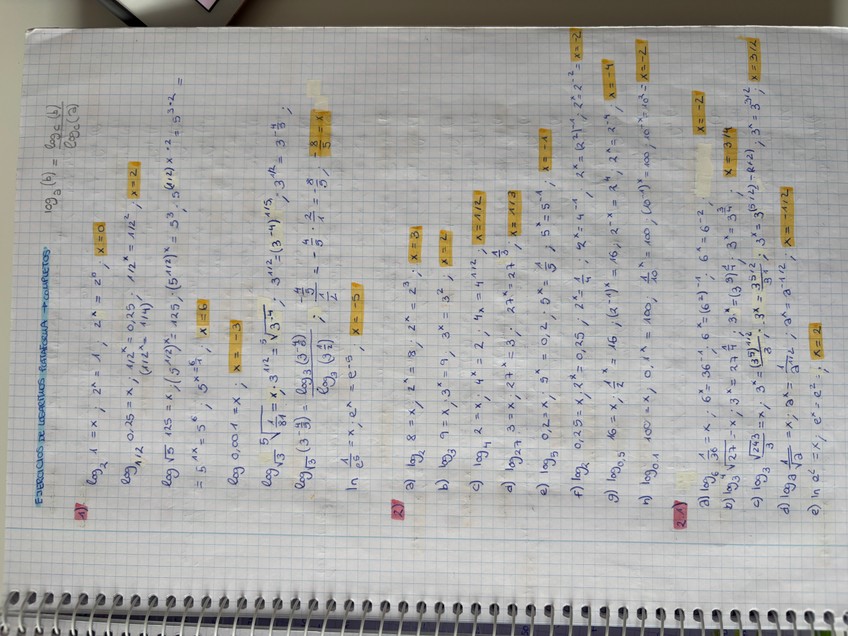 log_a (b) = log_c (b) / log_c (a)
EJERCICIOS DE LOGARITMOS PLATAFORMA + COMPLETOS.
1)
log_2 1 = x ; 2^x = 1 ; 2^x = 2^0 ; x = 0
log_1/2 0,25 = x ; 1/2^x = 0,25 ; 1/2^x = 1/2^2 ; x = 2
(1/2^x = 1/4)
log √5 125 = x ; (5^1/2)^x = 125 ; (5^1/2)^x = 5^3 ; 5^(1/2)x·2 = 5^3·2 =
= 5^1x = 5^6 ; 5^x = 6/1 ; x = 6
log 0,001 = x ; x = -3
log_√3 ⁵√1/81 = x ; 3^1/2 = ⁵√3^-4 ; 3^1/2 = (3^-4)^1/5 ; 3^1/2 = 3^-4/5 ;
log_√3 (3^-4/5) = log_3 (3^-4/5) / log_3 (3^1/2) ; -4/5 / 1/2 = -4/5 · 2/1 = -8/5 ; -8/5 = x
ln 1/e^5 = x ; e^x = e^-5 ; x = -5
2)
a) log_2 8 = x ; 2^x = 8 ; 2^x = 2^3 ; x = 3
b) log_3 9 = x ; 3^x = 9 ; 3^x = 3^2 ; x = 2
c) log_4 2 = x ; 4^x = 2 ; 4x = 4^1/2 ; x = 1/2
d) log_27 3 = x ; 27^x = 3 ; 27^x = 27^1/3 ; x = 1/3
e) log_5 0,2 = x ; 5^x = 0,2 ; 5^x = 1/5 ; 5^x = 5^-1 ; x = -1
f) log_2 0,25 = x ; 2^x = 0,25 ; 2^x = 1/4 ; 2^x = 4^-1 ; 2^x = (2^2)^-1 ; 2^x = 2^-2 = x = -2
g) log_0,5 16 = x ; 1/2^x = 16 ; (2^-1)^x = 16 ; 2^-x = 2^4 ; 2^x = 2^-4 ; x = -4
h) log_0,1 100 = x ; 0,1^x = 100 ; 1/10^x = 100 ; (10^-1)^x = 100 ; 10^-x = 10^2 = x = -2
2.1)
a) log_6 1/36 = x ; 6^x = 36^-1 ; 6^x = (6^2)^-1 ; 6^x = 6^-2 ; x = -2
b) log_3 ⁴√27 = x ; 3^x = 27^1/4 ; 3^x = (3^3)^1/4 ; 3^x = 3^3/4 ; x = 3/4
c) log_3 √243/3 = x ; 3^x = (3^5)^1/2/3 ; 3^x = 3^5/2/3^1 ; 3^x = 3^(5/2)-(2/2) ; 3^x = 3^3/2 ; x = 3/2
d) log_3 1/√3 = x ; 3^x = 1/3^1/2 ; 3^x = 3^-1/2 ; x = -1/2
e) ln e^2 = x ; e^x = e^2 ; x = 2